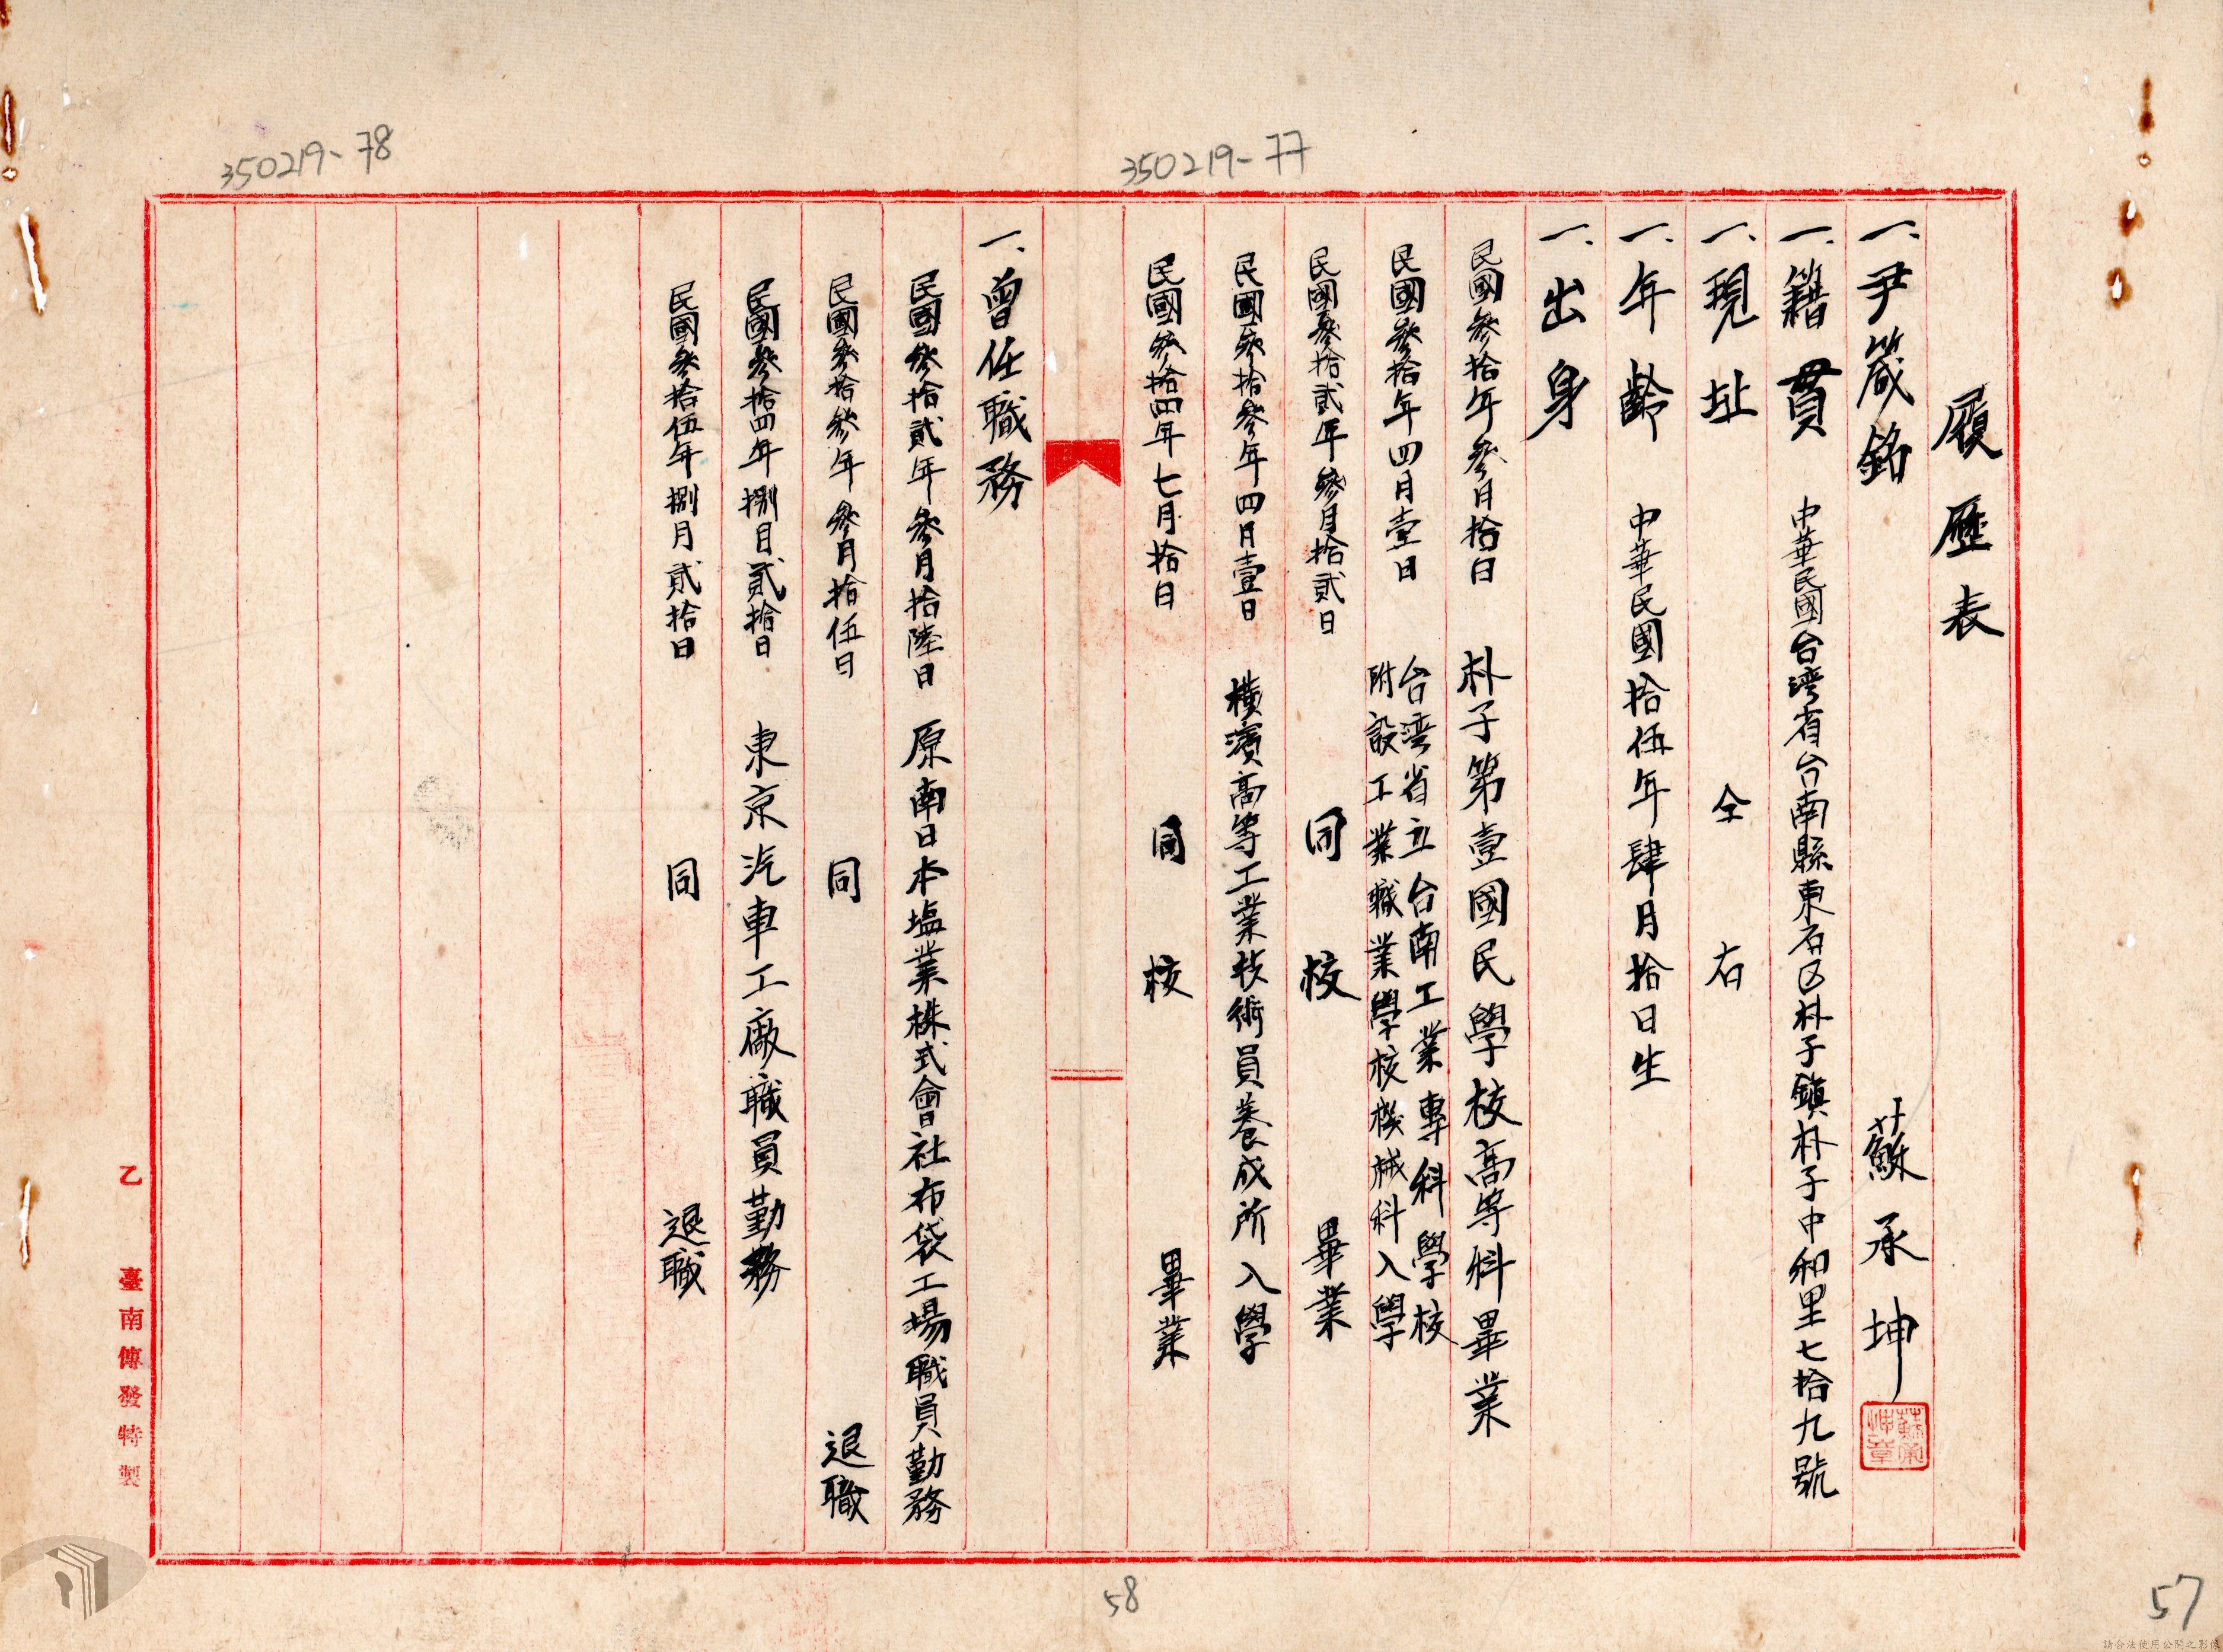 350219-77
350219-78
履歷表
一、尹箴銘 蘇承坤
一、籍貫 中華民國台湾省台南縣東石区朴子鎮朴子中和里七拾九號
一、現址 仝右
一、年齡 中華民國拾伍年肆月拾日生
一、出身
民國參拾年參月拾日 朴子第壹國民學校高等科畢業
民國參拾年四月壹日 台湾省立台南工業專科學校
附設工業職業學校機械科入學
民國參拾貳年參月拾貳日 同校 畢業
民國參拾參年四月壹日 橫濱高等工業技術員養成所入學
民國參拾四年七月拾日 同校 畢業
一、曾任職務
民國參拾貳年參月拾陸日 原南日本塩業株式會社布袋工場職員勤務
民國參拾參年參月拾伍日 同 退職
民國參拾四年捌月貳拾日 東京汽車工廠職員勤務
民國參拾伍年捌月貳拾日 同 退職
乙 臺南傳發特製
58
57
請合法使用公開之影像